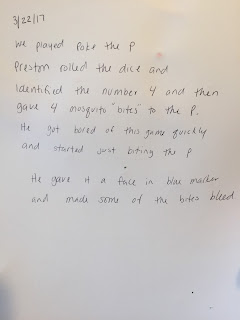 3/22/17
We played Poke the P
Preston rolled the dice and
Identified the number 4 and then
gave 4 mosquito "bites" to the P.
He got bored of this game quickly
and started just biting the P
He gave it a face in blue marker
and made some of the bites bleed.